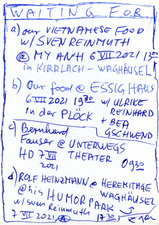 WAITING FOR
a) our VIETNAMESE FOOD
w/ SVEN REINMUTH
@ MY ANH 6 VII 2021 1300
in KIRRLACH - WAGHÄUSEL
b) Our food @ ESSIGHAUS
6 VII 2021 1930 w/ ULRIKE
in der PLÖCK REINHARD
+ BEA
GSCHWEND
c) Bernhard
Fauser @ UNTERWEGS
HD 7 VII THEATER
2021 0930
d) ROLF HEINZMANN @ HEREMITAGE
@ his WAGHÄUSEL
HUMORPARK
w/ Sven Reinmuth
7 VII 2021 1730